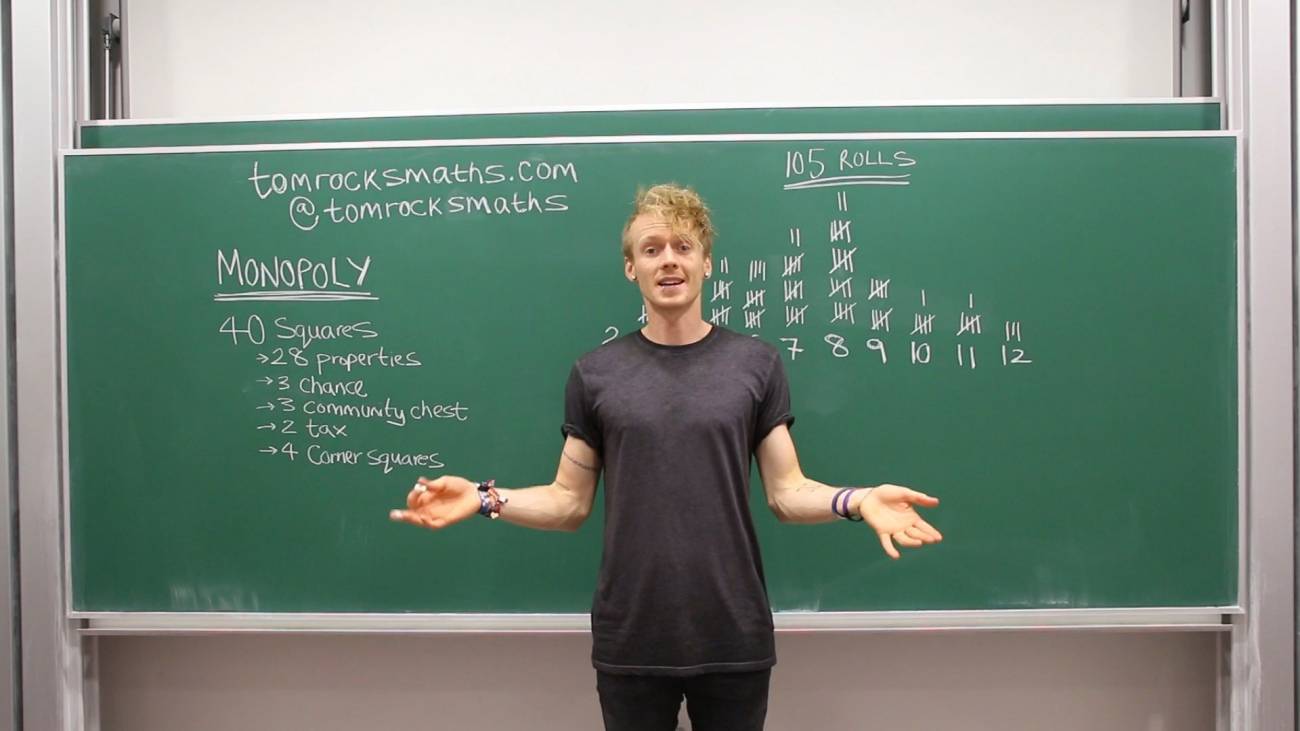 tomrocksmaths.com
@tomrocksmaths
MONOPOLY
40 Squares
→28 properties
→3 Chance
→3 community chest
→2 tax
→4 Corner squares
105 ROLLS
2 7 8 9 10 11 12